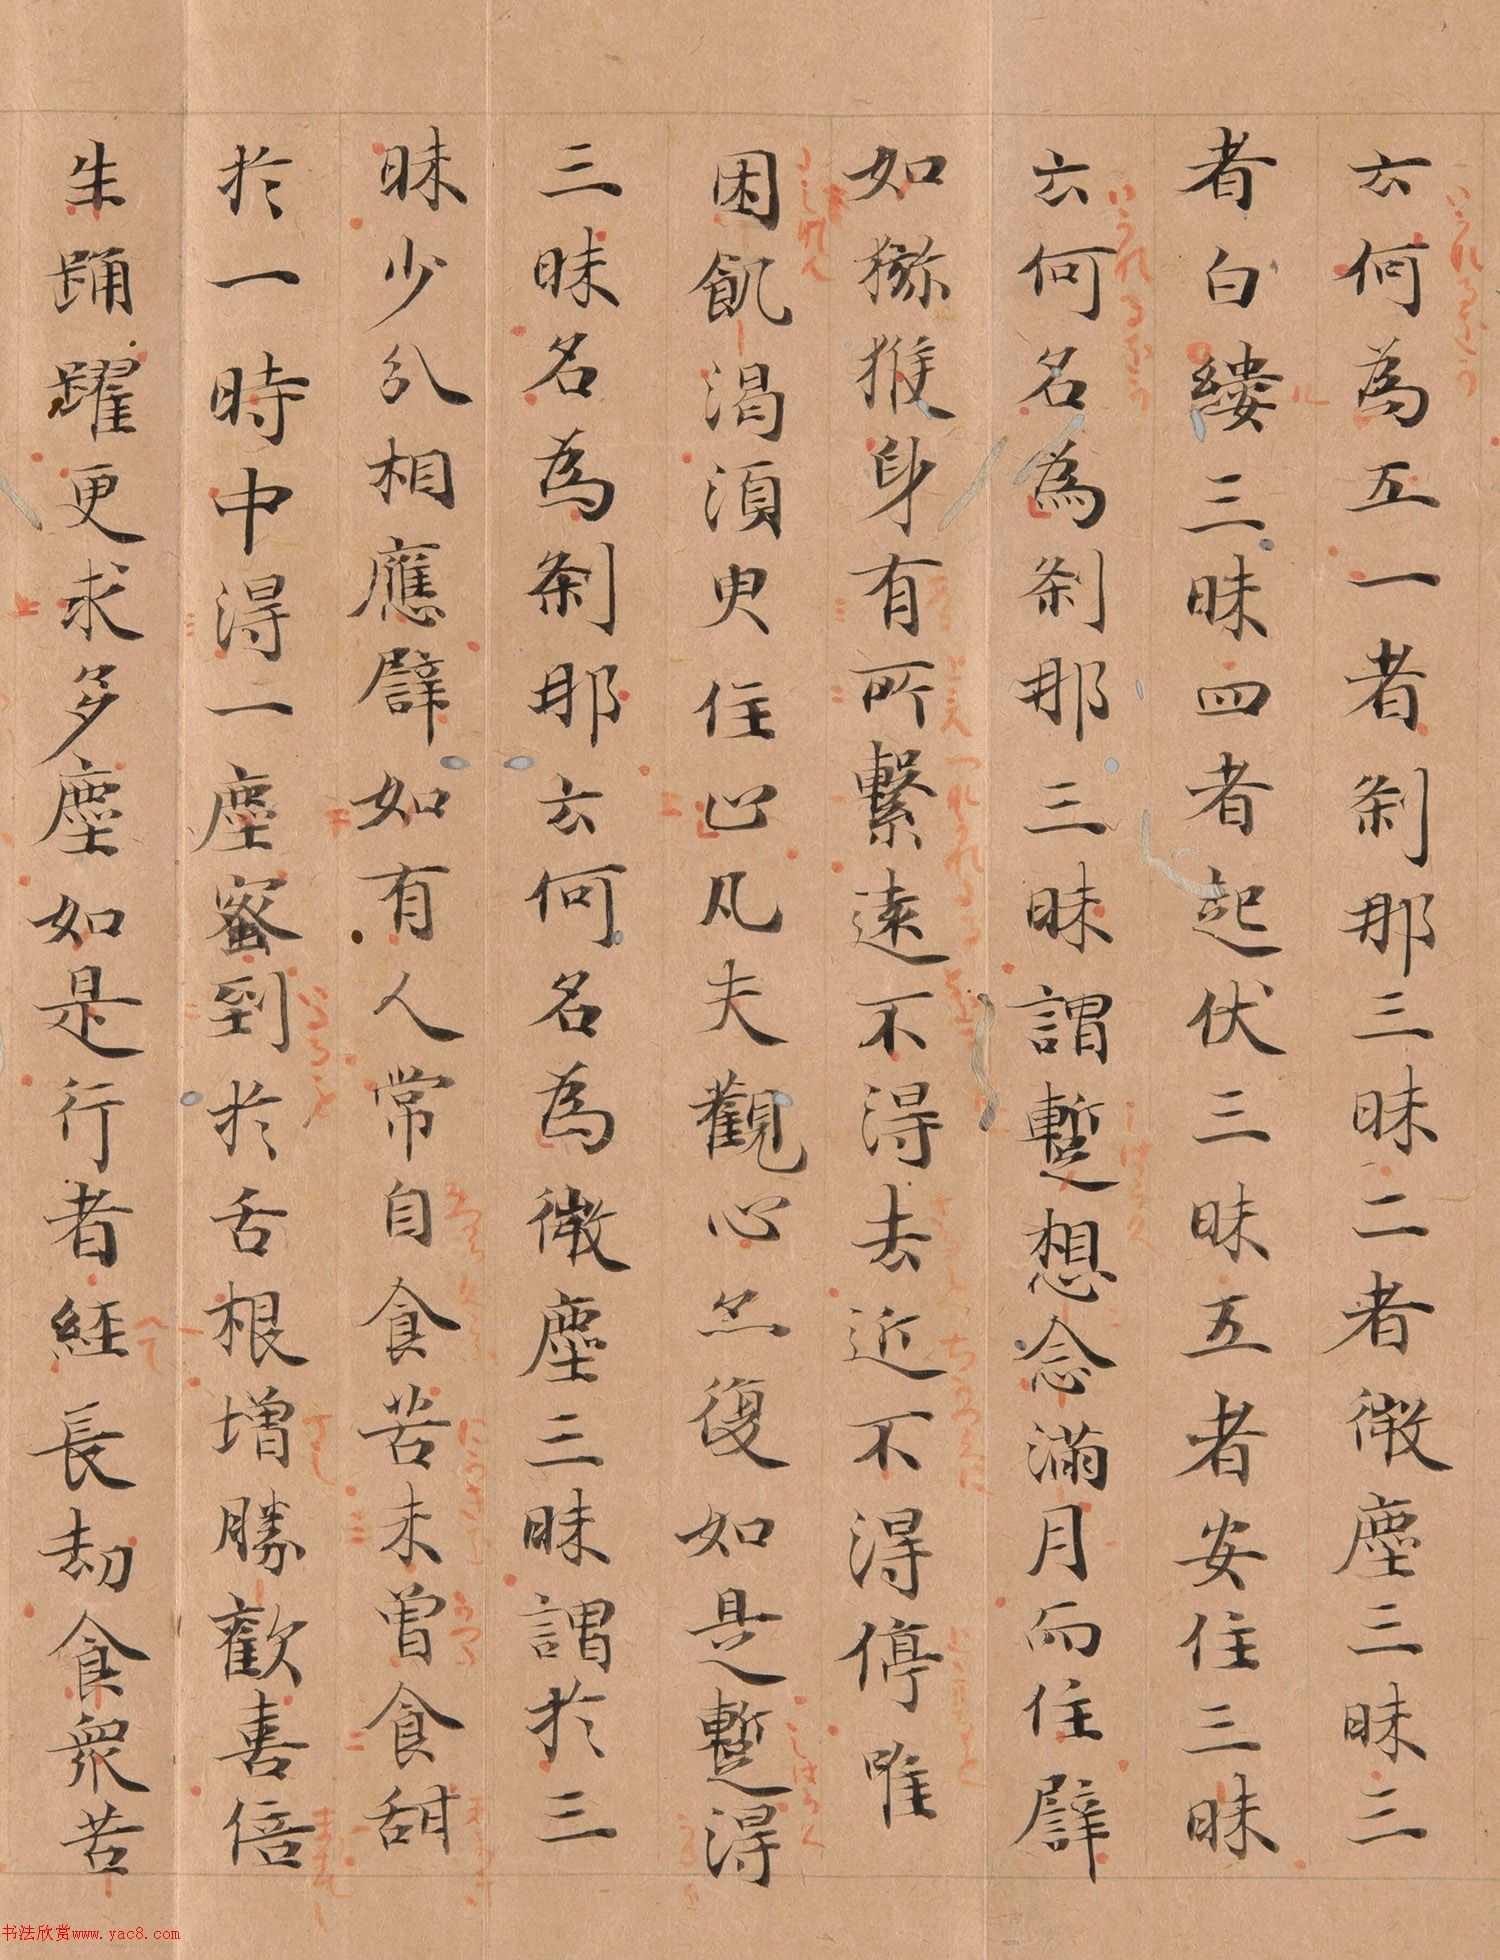 云何為五一者剎那三昧二者微塵三昧三
者白縷三昧四者起伏三昧五者安住三昧
云何名為剎那三昧謂暫想念滿月而住譬
如獼猴身有所繫遠不得去近不得停唯
困飢渴須臾住心凡夫觀心亦復如是暫得
三昧名為剎那云何名為微塵三昧謂於三
昧少分相應譬如有人常自食苦未曾食甜
於一時中得一塵蜜到於舌根增勝歡喜倍
生踊躍更求多塵如是行者經長劫食眾苦
书法欣赏www.yac8.com